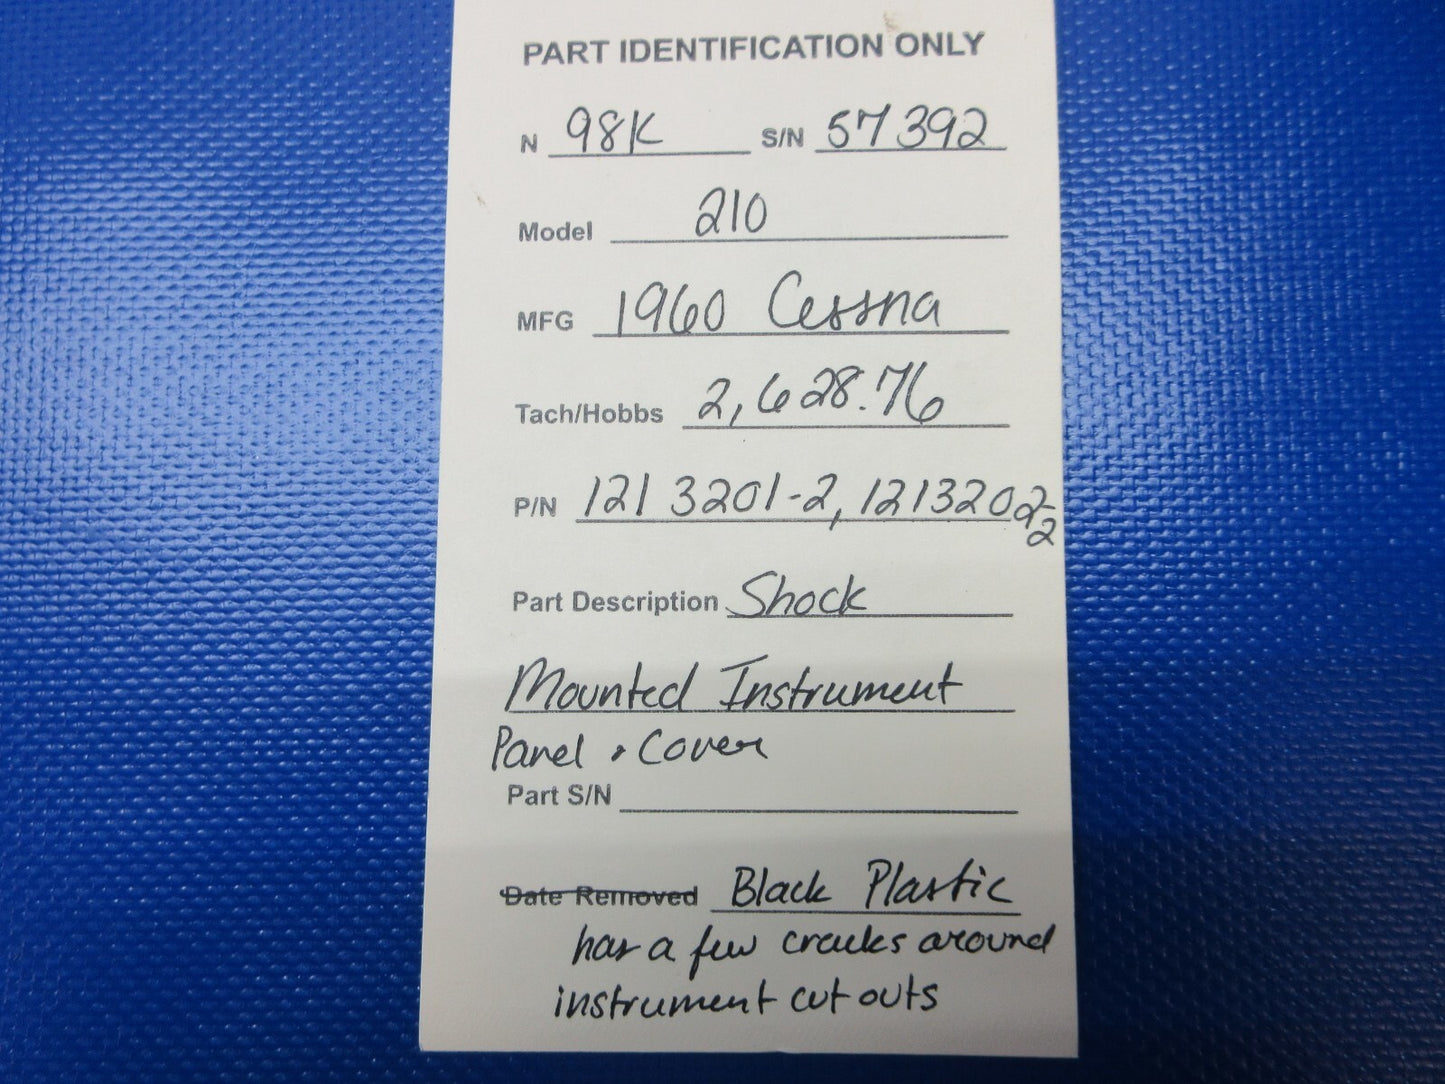 PART IDENTIFICATION ONLY
N 98K S/N 57392
Model 210
MFG 1960 Cessna
Tach/Hobbs 2,628.76
P/N 1213201-2, 1213202-2
Part Description Shock
Mounted Instrument
Panel & Cover
Part S/N
Date Removed Black Plastic
has a few cracks around
instrument cut outs